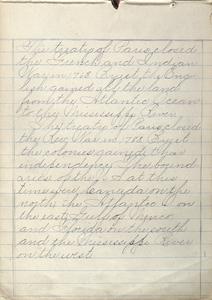 The treaty of Paris closed
the French and Indian
War in 1763 By it the Eng-
lish gained all the land
from the Atlantic Ocean
to the Mississippi River.
The treaty of Paris closed
the Rev War in 1783 By it
the colonies gained their
independence The bound
aries of the U S at this
time were Canada on the
north the Atlantic O on
the east Gulf of Mexico
and Florida on the south
and the Mississippi River
on the west